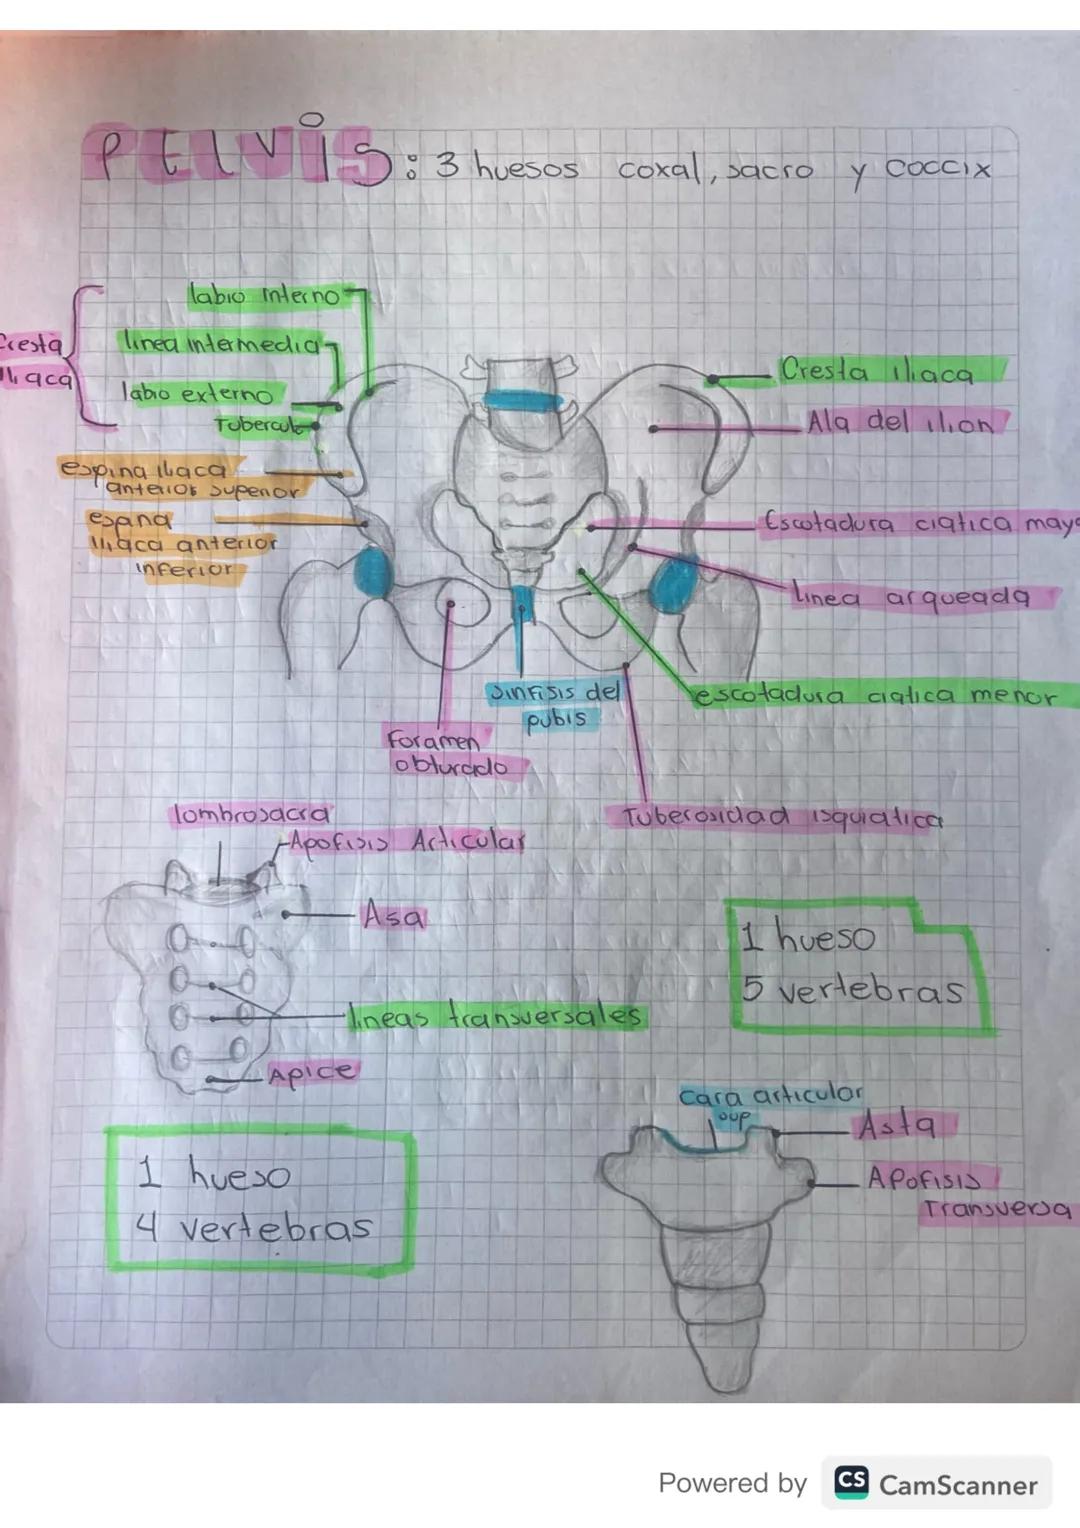 PELVIS: 3 huesos coxal, sacro y coccix
labio interno
Cresta
iliaca
linea intermedia
labio externo
Tubercul
espina iliaca
anterior superior
espina
iliaca anterior
inferior
Cresta iliaca
Ala del ilion
Escotadura ciatica mayo
linea arqueada
escotadura ciatica menor
sinfisis del
pubis
Foramen
obturado
Tuberosidad isquiatica
lombrosacra
Apofisis Articular
Asa
lineas transversales
Apice
1 hueso
5 vertebras
1 hueso
4 vertebras
cara articular
sup
Asta
Apofisis
Transversa
Powered by CS CamScanner